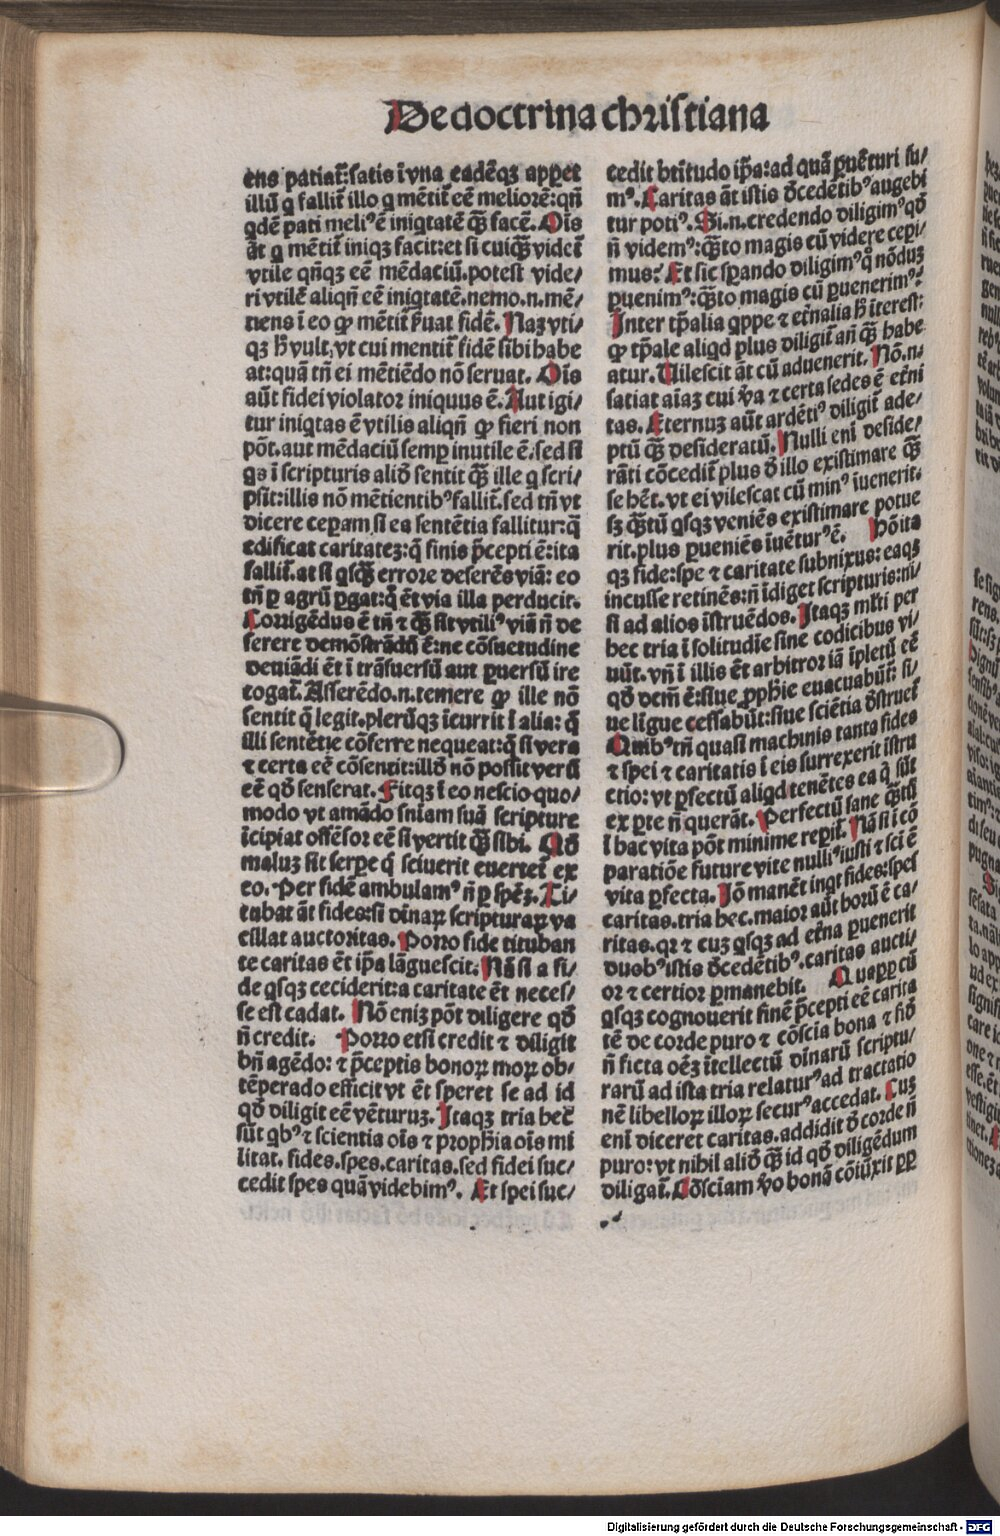 De doctrina christiana
ens patiat᷑:satis ī vna eadēqꝫ apꝑet
illū q̇ fallit᷑ illo q̇ mētit᷑ eē meliorē:qn̄
q̇dē pati meliꝰ ē iniq̇tatē q̄ꝫ facē. Oīs
āt q̇ mētit᷑ iniqꝫ facit:et si cuiq̄ꝫ videt᷑
vtile qn̄qꝫ eē mēdaciū.potest vide/
ri vtilē aliqn̄ eē iniq̇tatē.nemo.n.mē/
tiens ī eo ꝙ mētit᷑ ẜuat fidē. Naꝫ vti/
qꝫ h̄ vult,vt cui mentit᷑ fidē sibi habe
at:quā tn̄ ei mētiēdo nō seruat. Oīs
aūt fidei violator iniquus ē. Aut igi/
tur iniq̇tas ē vtilis aliqn̄ ꝙ fieri non
pōt.aut mēdaciū semꝑ inutile ē.sed si
q̇s ī scripturis aliđ sentit q̄ꝫ ille q̇ scri/
psit:illis nō mētientibꝰ fallit᷑.sed tn̄ vt
dicere ceperam si ea sentētia fallitur:q̄
edificat caritateꝫ:q̄ finis p̄cepti ē:ita
fallit᷑.at si q̇sq̄ꝫ errore deserēs viā: eo
tn̄ ꝑ agrū ꝑgat:q̄ ēt via illa perducit.
Corrigēdus ē tn̄ ⁊ q̄ꝫ sit vtiliꝰ viā n̄ de
serere demōstrādū ē:ne cōsuetudine
deuiādi ēt ī trāsuersū aut ꝑuersū ire
cogat᷑. Asserēdo.n.temere ꝙ ille nō
sentit q̄ legit.plerūqꝫ īcurrit ī alia: q̄
illi sentētie cōferre nequeat:q̄ si vera
⁊ certa eē cōsentit:illđ nō possit verū
eē qđ senserat. Fitqꝫ ī eo nescio quo/
modo vt amādo sn̄iam suā scripture
īcipiat offēsor eē si vertit q̄ꝫ sibi. Qđ
maluꝫ sit serpe q̄ sciuerit euertet᷑ ex
eo. Per fidē ambulamꝰ n̄ ꝑ spēꝫ. Ti/
tubat āt fides:si dīnaꝝ scripturaꝝ va
cillat auctoritas. Porro fide tituban
te caritas ēt ip̄a lāguescit. Nā si a fi/
de q̇sqꝫ ceciderit:a caritate ēt neces/
se est cadat. Nō enīꝫ pōt diligere qđ
n̄ credit. Porro etsi credit ⁊ diligit
bn̄ agēdo: ⁊ p̄ceptis bonoꝝ moꝝ ob/
tēperado efficit vt ēt speret se ad id
qđ diligit eē vēturuꝫ. Itaqꝫ tria hec̄
sūt q̇bꝰ ⁊ scientia oīs ⁊ proph̄ia oīs mi
litat. fides.spes.caritas.sed fidei suc/
cedit spes quā videbimꝰ. Et spei suc/
cedit bt̄itudo ip̄a:ad quā ꝑuēturi su/
mꝰ. Caritas āt istis đcedētibꝰ augebi
tur potiꝰ. Si.n.credendo diligimꝰ qđ
n̄ videmꝰ:q̄ꝫto magis cū videre cepi/
mus? Et sic sꝑando diligimꝰ q̊ nōduꝫ
ꝑuenimꝰ:q̄ꝫto magis cū ꝑuenerimꝰ?
Inter tp̄alia q̇ppe ⁊ et̄nalia h̄ īterest:
ꝙ tp̄ale aliq̇d plus diligit᷑ an̄ q̄ꝫ habe
atur. Vilescit āt cū aduenerit. Nō.n.
satiat aīaꝫ cui ꝟa ⁊ certa sedes ē et̄ni
tas. Eternuꝫ aūt ardētiꝰ diligit᷑ ade/
ptū q̄ꝫ desideratū. Nulli enī deside/
rāti cōcedit᷑ plus đ illo existimare q̄ꝫ
se hēt. vt ei vilescat cū minꝰ īuenerit.
sꝫ q̄ꝫtū q̇sqꝫ veniēs existimare potue
rit.plus ꝑueniēs īuēturꝰ ē. Hō ita
qꝫ fide:spe ⁊ caritate subnixus: eaqꝫ
incusse retinēs:n̄ īdiget scripturis:ni/
si ad alios īstruēdos. Itaqꝫ ml̄ti per
hec tria ī solitudīe sine codicibus vi/
uūt.vn̄ ī illis ēt arbitror iā īpletū eē
qđ dcm̄ ē:siue ꝓph̄ie euacuabūt᷑: si/
ue ligue cessabūt:siue sciētia đstruet᷑
Quibꝰ tn̄ quasi machinis tanta fides
⁊ spei ⁊ caritatis ī eis surrexerit īstru
ctio: vt ꝑfectū aliq̇d tenētes ea q̄ sūt
ex ꝑte n̄ querāt. Perfectū sane q̄ꝫtū
ī hac vita pōt minime reꝑit᷑. Nā si ī cō
paratiōe future vite nulliꝰ iusti ⁊ sci ē
vita ꝑfecta. Iō manēt inq̇t fides:spes
caritas.tria hec.maior aūt horū ē ca/
ritas.qr ⁊ cuꝫ q̇sqꝫ ad et̄na ꝑuenerit
duobꝰ istis đcedētibꝰ.caritas aucti/
or ⁊ certior ꝑmanebit. Quaꝓꝑ cū
q̇sqꝫ cognouerit finē p̄cepti eē carita
tē de corde puro ⁊ cōscia bona ⁊ fiđ
n̄ ficta oēꝫ ītellectū dīnarū scriptu/
rarū ad ista tria relaturꝰ ad tractatio
nē libelloꝝ illoꝝ securꝰ accedat. Cuꝫ
enī diceret caritas.addidit đ corde
puro: vt nihil aliđ q̄ꝫ id qđ diligēdum
diligat᷑. Cōsciam ꝟo bonā cōiūxit ꝓꝑ
Digitalisierung gefördert durch die Deutsche Forschungsgemeinschaft - DFG